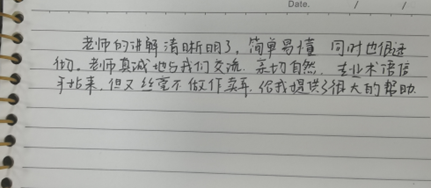 Date. / /
老师的讲解清晰明了，简单易懂 同时也很迷
他。老师真诚地与我们交流 亲切自然。专业术语信
手拈来，但又丝毫不做作卖弄。给我提供了很大的帮助